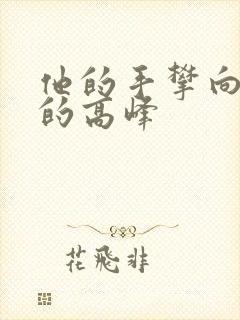 他的手攀向
的高峰
花飛非